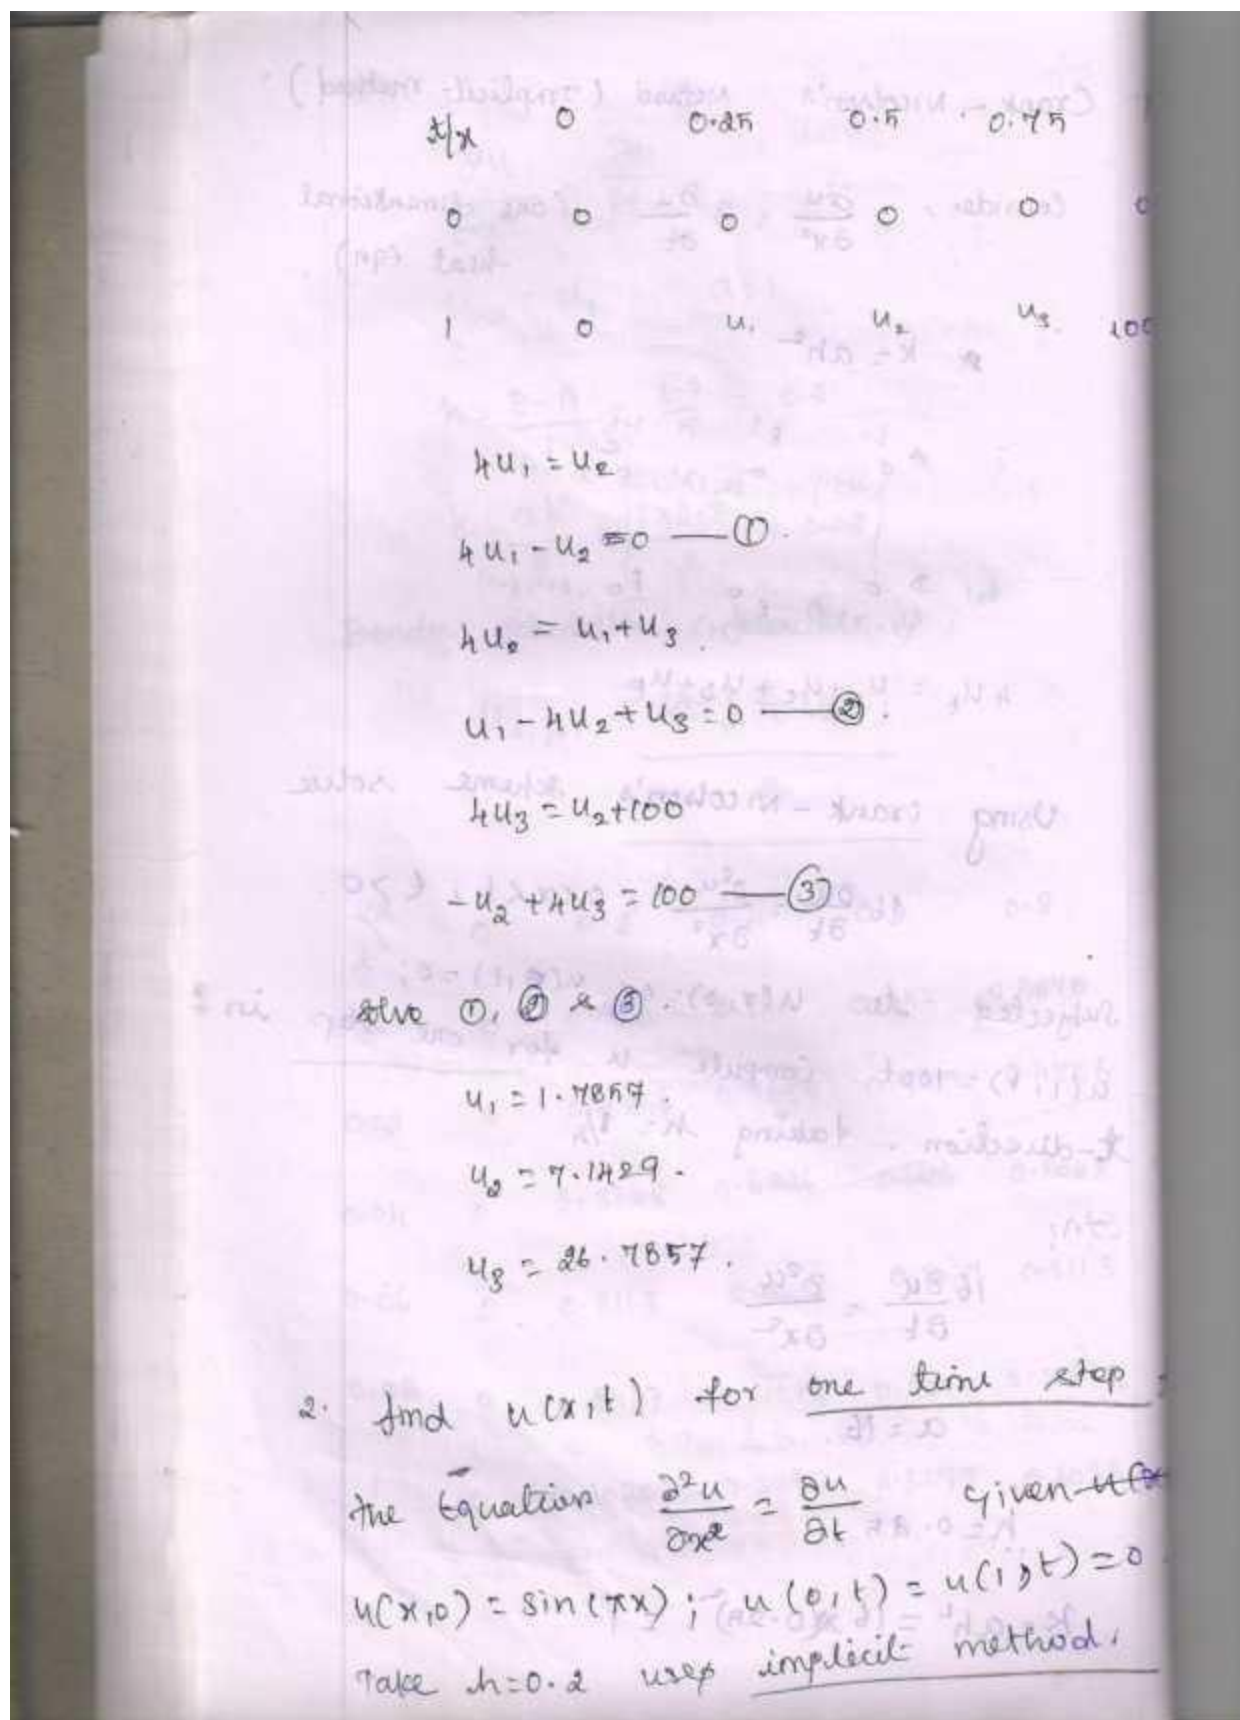 t/x 0 0.25 0.5 0.75
0 0 0 0 0 0
1 0 u₁ u₂ u₃ 100
4u₁ = u₂
4u₁ - u₂ = 0 — ①.
4u₂ = u₁ + u₃.
u₁ - 4u₂ + u₃ = 0 — ②.
4u₃ = u₂ + 100
- u₂ + 4u₃ = 100 — ③
solve ①, ② & ③.
u₁ = 1.7857.
u₂ = 7.1429.
u₃ = 26.7857.
2. find u(x,t) for one time step
the Equation ∂²u/∂x² = ∂u/∂t given
u(x,0) = sin(πx); u(0,t) = u(1,t) = 0.
Take h=0.2 implicit method.